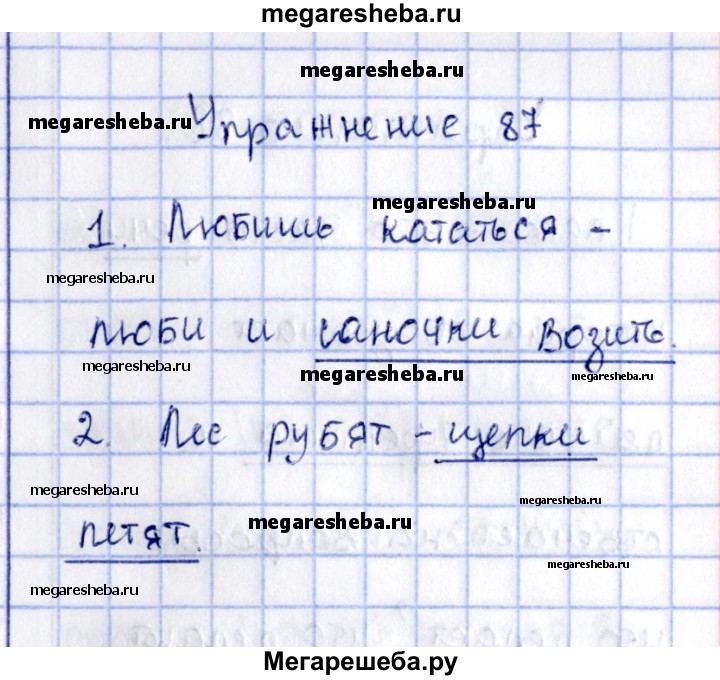 megaresheba.ru
megaresheba.ru
megaresheba.ru
Упражнение 87
megaresheba.ru
1. Любишь кататься -
megaresheba.ru
люби и саночки возить.
megaresheba.ru
megaresheba.ru
megaresheba.ru
2. Лес рубят - щепки
megaresheba.ru
megaresheba.ru
megaresheba.ru
летят.
megaresheba.ru
megaresheba.ru
Мегарешеба.ру